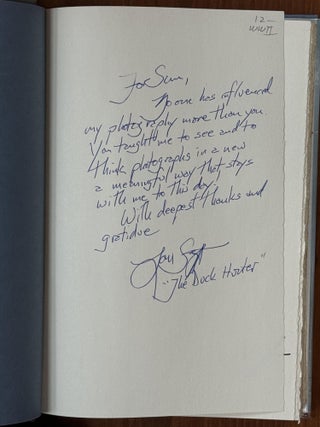 12—
WWII
For Sam,
No one has influenced
my photography more than you
You taught me to see and to
think photographs in a new
a meaningful way that stays
with me to this day.
With deepest thanks and
gratidue
"The Duck Hunter"